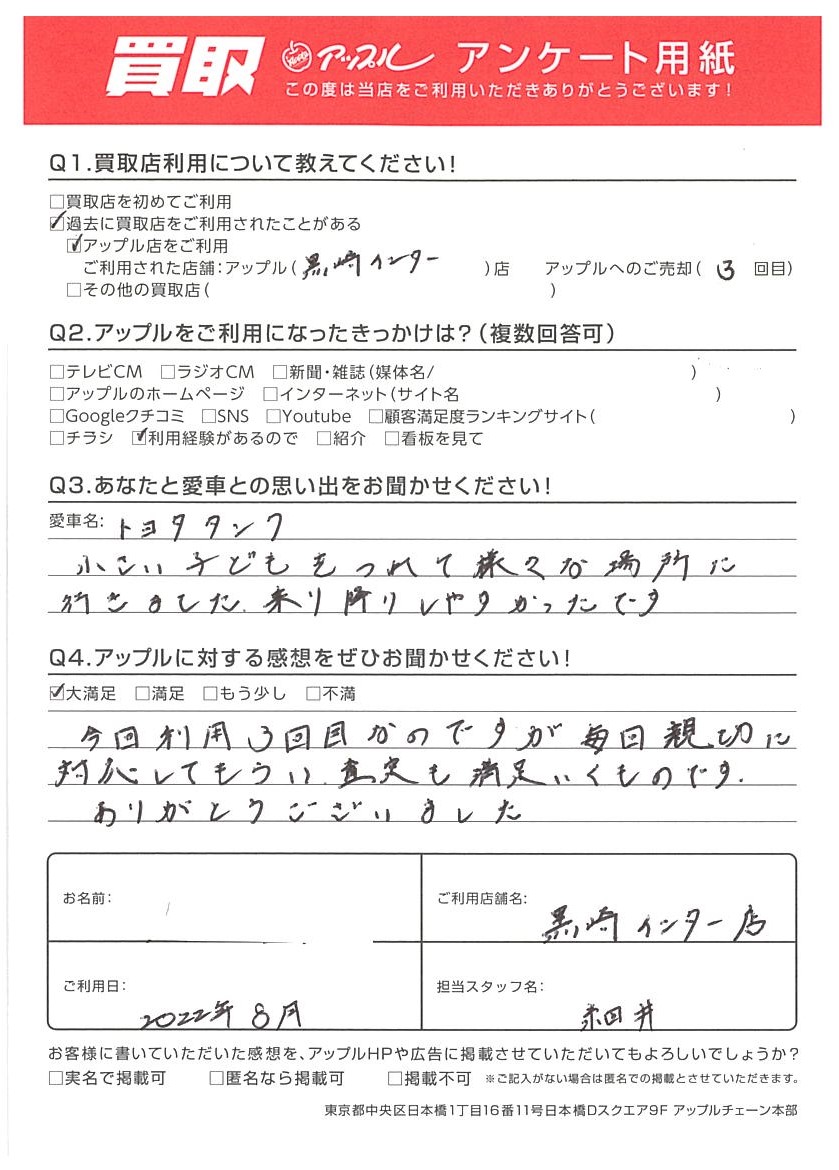 買取 アップル アンケート用紙
この度は当店をご利用いただきありがとうございます!
Q1.買取店利用について教えてください!
□買取店を初めてご利用
☑過去に買取店をご利用されたことがある
☑アップル店をご利用
ご利用された店舗:アップル(黒崎インター)店 アップルへのご売却(3回目)
□その他の買取店( )
Q2.アップルをご利用になったきっかけは?(複数回答可)
□テレビCM □ラジオCM □新聞・雑誌(媒体名/ )
□アップルのホームページ □インターネット(サイト名 )
□Googleクチコミ □SNS □Youtube □顧客満足度ランキングサイト( )
□チラシ ☑利用経験があるので □紹介 □看板を見て
Q3.あなたと愛車との思い出をお聞かせください!
愛車名: トヨタタンク
小さい子どもをつれて様々な場所に
行きました。乗り降りしやすかったです
Q4.アップルに対する感想をぜひお聞かせください!
☑大満足 □満足 □もう少し □不満
今回利用3回目なのですが毎回親切に
対応してもらい、査定も満足いくものです。
ありがとうございました
お名前:
ご利用店舗名:
黒崎インター店
ご利用日:
2022年8月
担当スタッフ名:
細井
お客様に書いていただいた感想を、アップルHPや広告に掲載させていただいてもよろしいでしょうか?
□実名で掲載可 □匿名なら掲載可 □掲載不可 ※ご記入がない場合は匿名での掲載とさせていただきます。
東京都中央区日本橋1丁目16番11号日本橋Dスクエア9F アップルチェーン本部